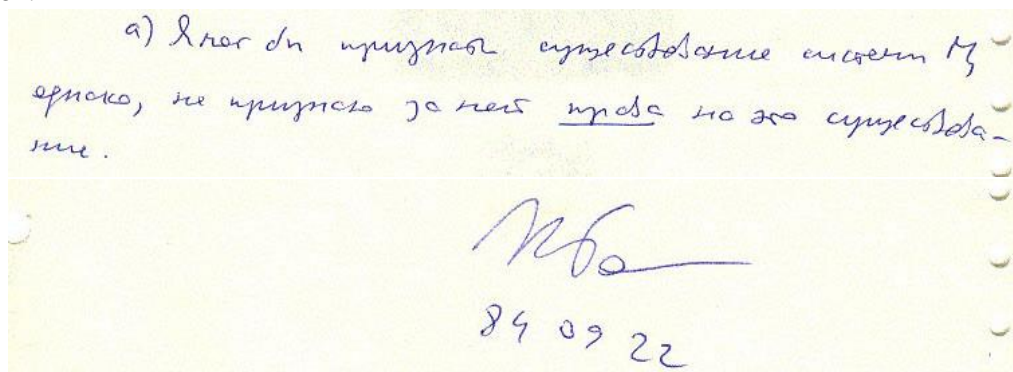 а) Я мог бы признать существование системы М,
однако, не признаю за ней права на это существова-
ние.
84 09 22